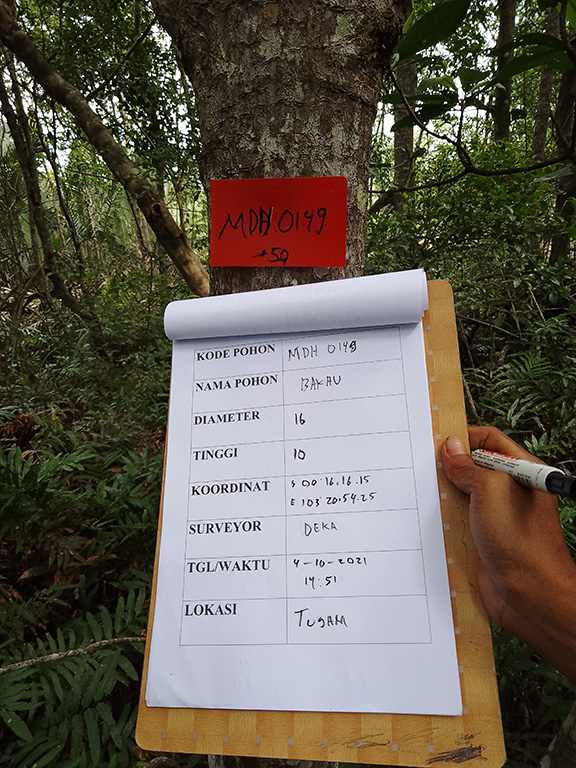 MDH.0149
*59
KODE POHON MDH 0149
NAMA POHON BAKAU
DIAMETER 16
TINGGI 10
KOORDINAT S 00.16.16.15
E 103 20.54.25
SURVEYOR DEKA
TGL/WAKTU 4-10-2021
14:51
LOKASI